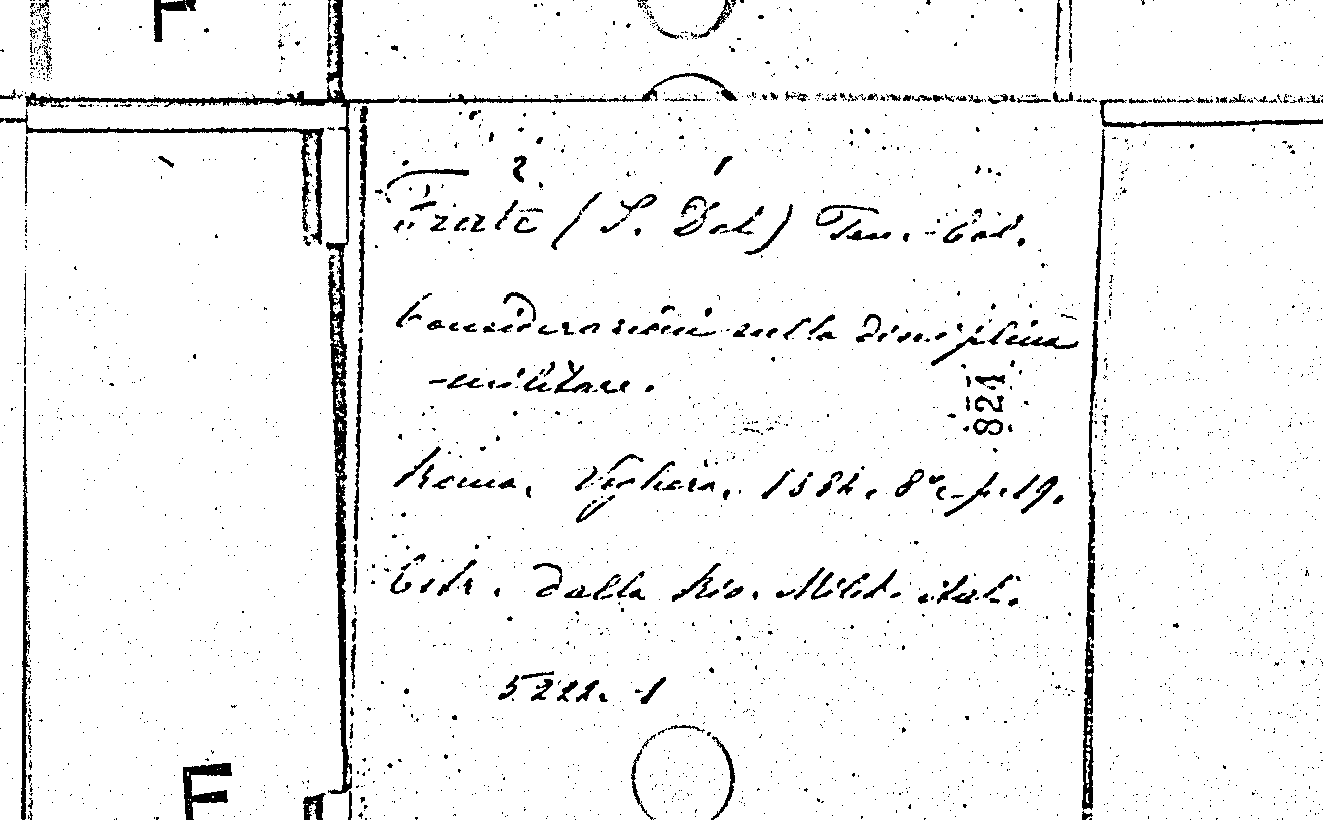 F
2 1
(S. Dal) Ten. Col.
Considerazioni sulla disciplina
militare.
824
Roma, Voghera, 1884. 8° p. 19.
Estr. dalla Riv. Milit. ital.
5222. 1
F